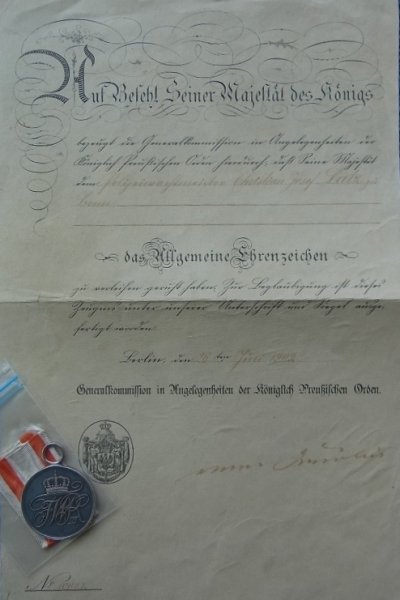 Auf Befehl Seiner Majestät des Königs
bezeugt die Generalkommission in Angelegenheiten der
Königlich Preußischen Orden hierdurch, daß Seine Majestät
dem Polizeiwachtmeister Christian Josef Lutz zu
das Allgemeine Ehrenzeichen
zu verleihen geruht haben. Zur Beglaubigung ist dieses
Zeugnis unter unserer Unterschrift und Siegel ausge-
fertigt worden.
Berlin, den 26 ten Juni 1902
Generalkommission in Angelegenheiten der Königlich Preußischen Orden.